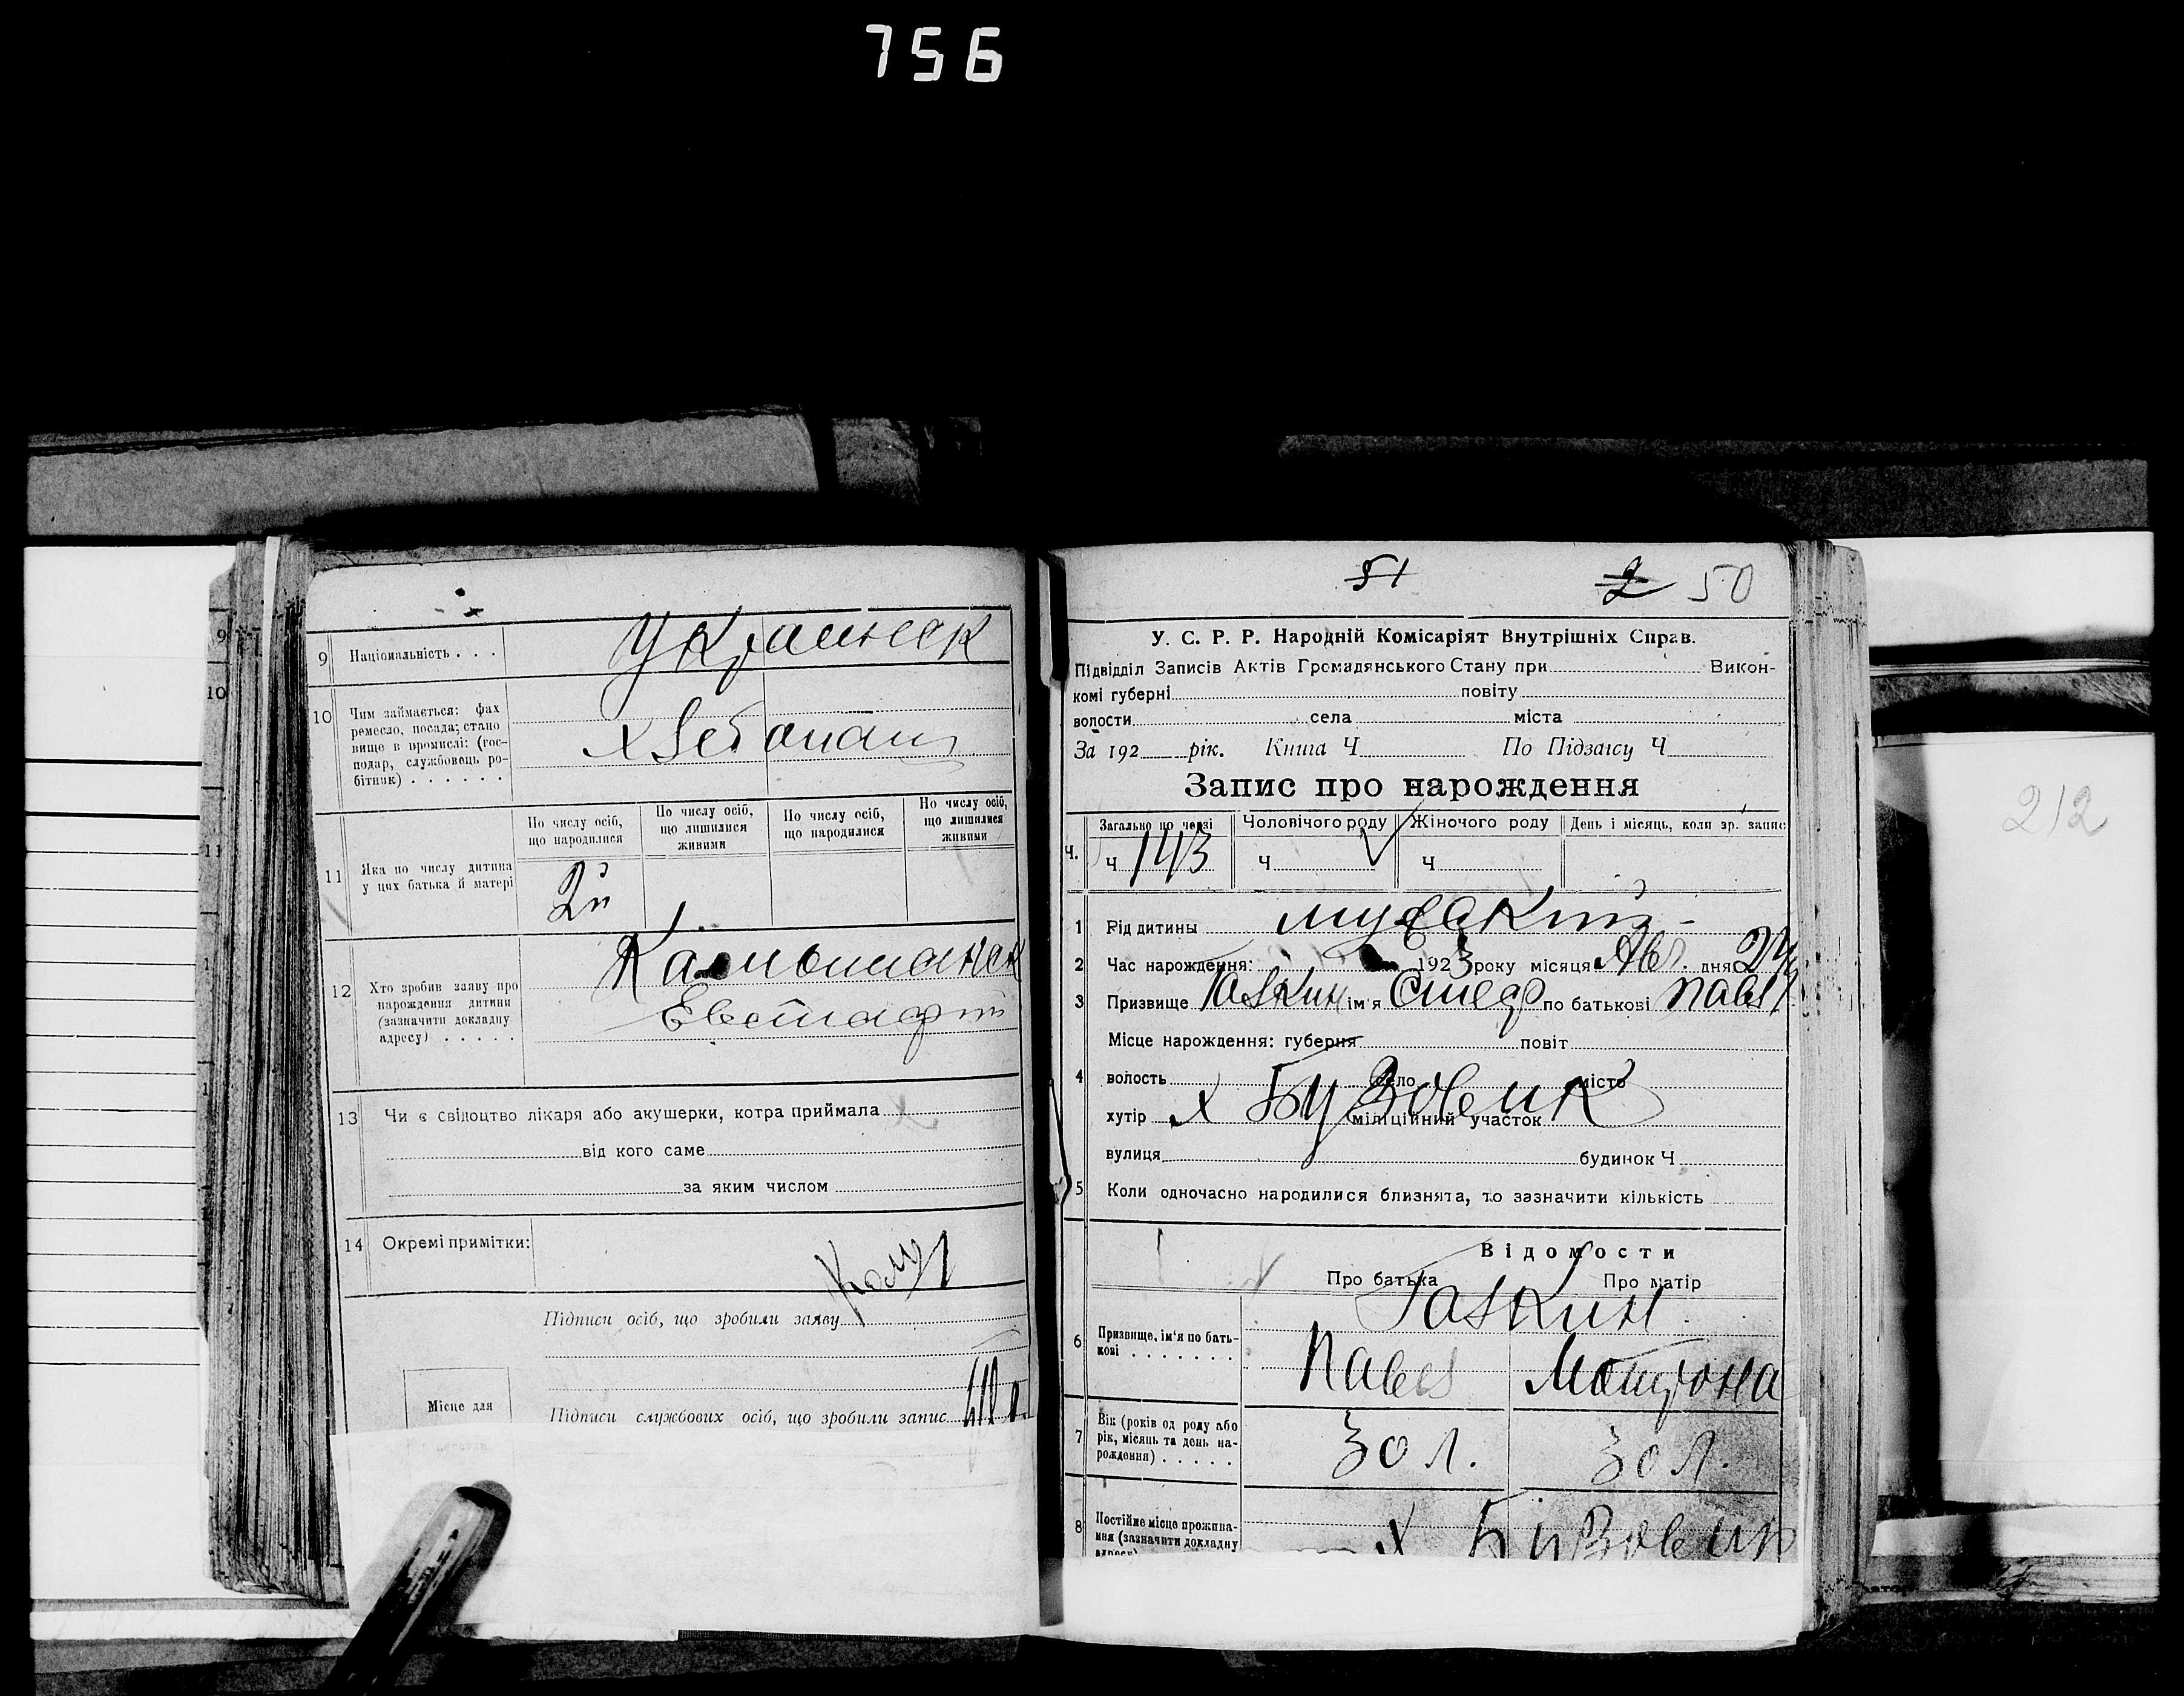 756
9 Національність . . . Украинск
10 Чим займається: фах
ремесло, посада; стано
вище в промислі: (гос-
подар, службовець ро-
бітник) . . . . . .
хлебопаш
По числу осіб, що народилися
По числу осіб, що лишилися живими
По числу осіб, що народилися
По числу осіб, що лишилися живими
11 Яка по числу дитина
у цих батька й матері
2й
12 Хто зробив заяву про
нарождення дитини
(зазначити докладну
адресу) . . . . .
Евстафий
13 Чи є свідоцтво лікаря або акушерки, котра приймала
від кого саме
за яким числом
14 Окремі примітки:
Підписи осіб, що зробили заяву
Місце для
Підписи службових осіб, що зробили запис
51 2 50
У. С. Р. Р. Народній Комісаріят Внутрішніх Справ.
Підвідділ Записів Актів Громадянського Стану при Викон-
комі губерні повіту
волости села міста
За 192 рік. Книга Ч По Підзаису Ч
Запис про нарождення
Ч. Загально по черзі Чоловічого роду Жіночого роду День і місяць, коли зр. запис
Ч 143 Ч Ч
1 Рід дитины мужский
2 Час нарождення: 1923 року місяця Авг. дня 24
3 Призвище ім'я Стеф по батькові Павел
Місце нарождення: губерня повіт
4 волость село місто
хутір х Бузовеик міліційний участок
вулиця будинок Ч
5 Коли одночасно народилися близнята, то зазначити кількість
Відомости
Про батька Про матір
Гаркин
6 Призвище, ім'я по бать-
кові . . . . . . .
Павел Мотрона
7 Вік (років од роду або
рік, місяць та день на-
рождення) . . . . .
30 л. 30 л.
8 Постійне місце прожива-
ння (зазначити докладну
адресу)
х Бузовеик
212